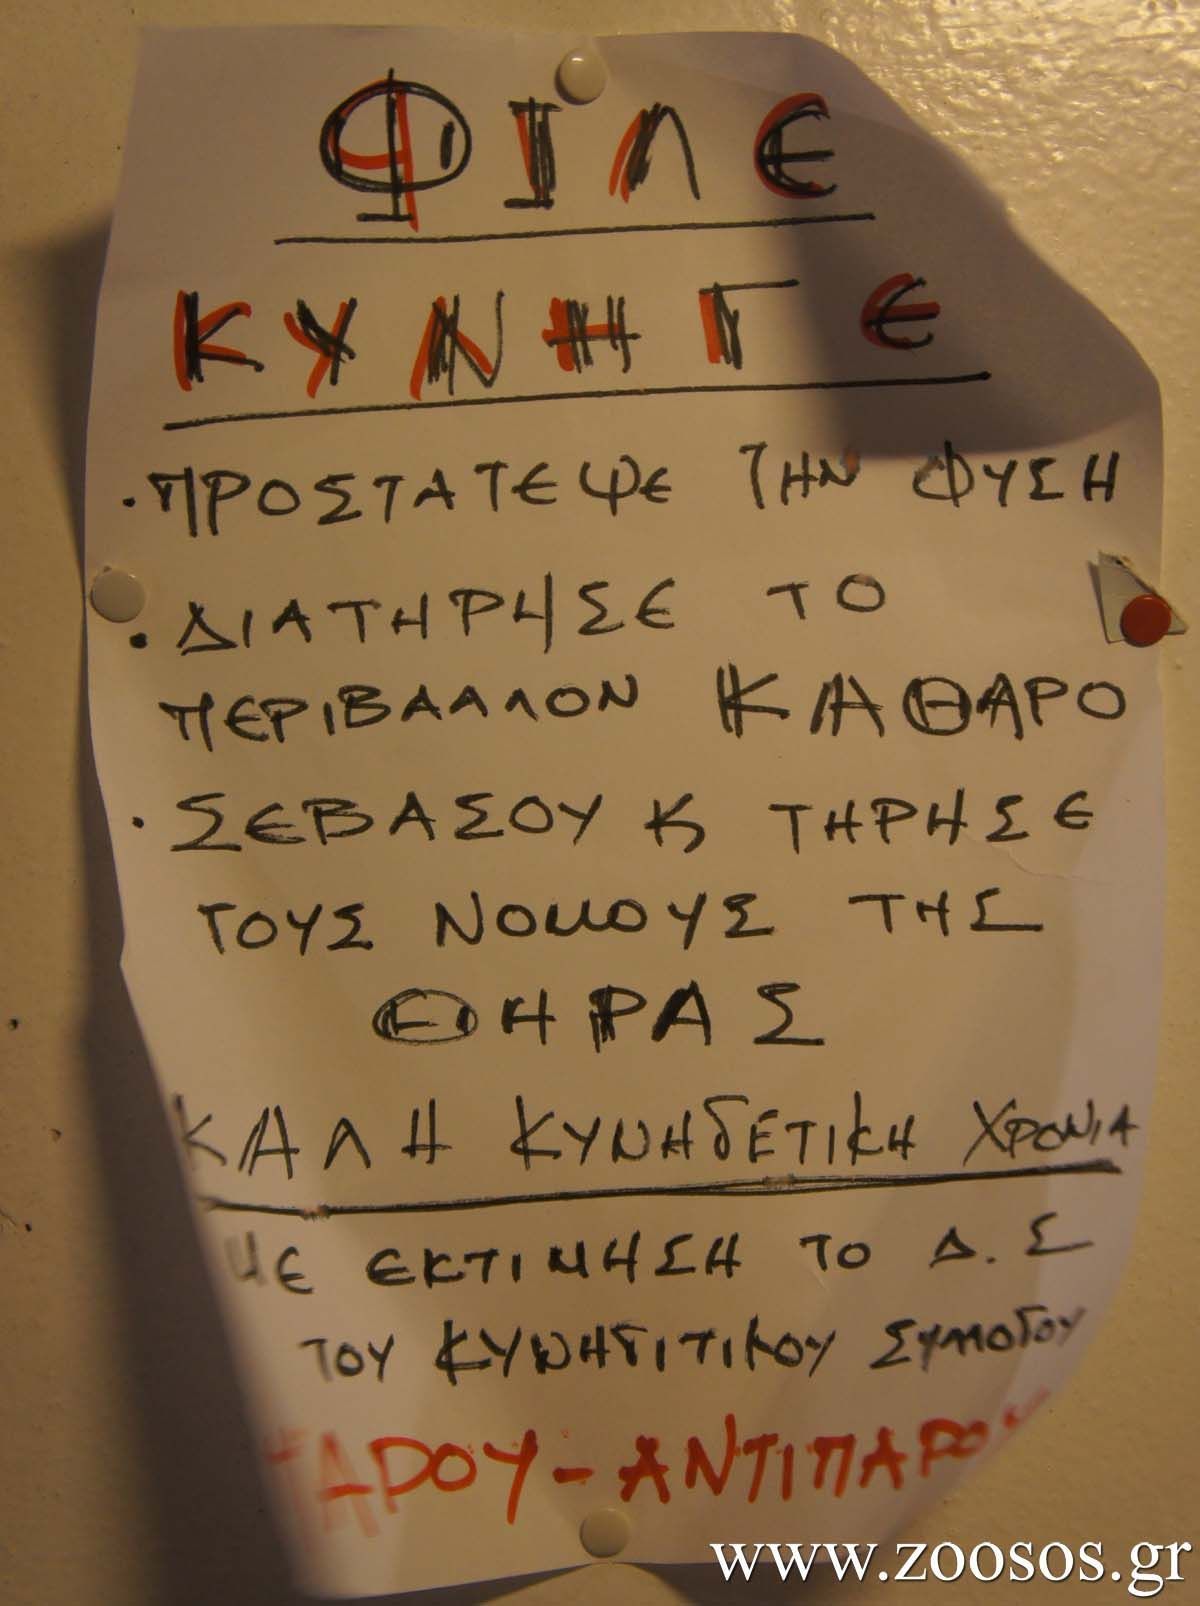 ΦΙΛΕ
ΚΥΝΗΓΕ
· ΠΡΟΣΤΑΤΕΨΕ ΤΗΝ ΦΥΣΗ
· ΔΙΑΤΗΡΗΣΕ ΤΟ
ΠΕΡΙΒΑΛΛΟΝ ΚΑΘΑΡΟ
· ΣΕΒΑΣΟΥ Κ ΤΗΡΗΣΕ
ΤΟΥΣ ΝΟΜΟΥΣ ΤΗΣ
ΘΗΡΑΣ
ΚΑΛΗ ΚΥΝΗΓΕΤΙΚΗ ΧΡΟΝΙΑ
ΜΕ ΕΚΤΙΜΗΣΗ ΤΟ Δ.Σ
ΤΟΥ ΚΥΝΗΓΙΤΙΚΟΥ ΣΥΛΛΟΓΟΥ
ΠΑΡΟΥ - ΑΝΤΙΠΑΡΟΥ
www.zoosos.gr